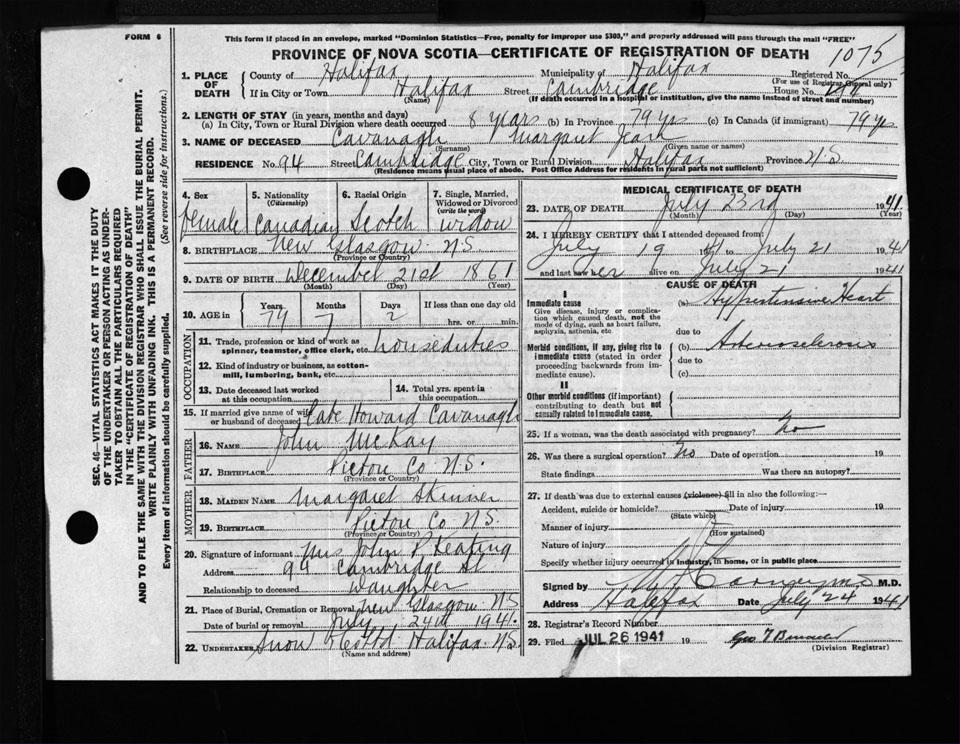 FORM 6
This form if placed in an envelope, marked "Dominion Statistics—Free, penalty for improper use $300," and properly addressed will pass through the mail "FREE"
PROVINCE OF NOVA SCOTIA—CERTIFICATE OF REGISTRATION OF DEATH
1075
1. PLACE OF DEATH County of Halifax Municipality of Halifax Registered No.
(For use of Registrar General only)
If in City or Town Halifax Street Cambridge House No.
(Name) (If death occurred in a hospital or institution, give the name instead of street and number)
2. LENGTH OF STAY (in years, months and days)
(a) In City, Town or Rural Division where death occurred 8 years (b) In Province 79 yrs (c) In Canada (if immigrant) 79 yrs
3. NAME OF DECEASED Cavanagh Margaret Jean
(Surname) (Given name or names)
RESIDENCE No. 94 Street Cambridge City, Town or Rural Division Halifax Province N.S.
(Residence means usual place of abode. Post Office Address for residents in rural parts not sufficient)
4. Sex 5. Nationality (Citizenship) 6. Racial Origin 7. Single, Married, Widowed or Divorced (write the word)
female Canadian Scotch widow
8. BIRTHPLACE New Glasgow N.S.
(Province or Country)
9. DATE OF BIRTH December 21st 1861
(Month) (Day) (Year)
10. AGE in Years Months Days If less than one day old
79 7 2 hrs. or min.
OCCUPATION
11. Trade, profession or kind of work as spinner, teamster, office clerk, etc. houseduties
12. Kind of industry or business, as cotton-mill, lumbering, bank, etc.
13. Date deceased last worked at this occupation
14. Total yrs. spent in this occupation
15. If married give name of wife or husband of deceased Late Howard Cavanagh
FATHER
16. NAME John McKay
17. BIRTHPLACE Pictou Co N.S.
(Province or Country)
MOTHER
18. MAIDEN NAME Margaret Skinner
19. BIRTHPLACE Pictou Co N.S.
(Province or Country)
20. Signature of informant Mrs John P Keating
Address 94 Cambridge St
Relationship to deceased Daughter
21. Place of Burial, Cremation or Removal New Glasgow N.S
Date of burial or removal July 24th 1941.
22. UNDERTAKER Snow Halifax N.S.
(Name and address)
MEDICAL CERTIFICATE OF DEATH
23. DATE OF DEATH July 23rd 1941
(Month) (Day)
24. I HEREBY CERTIFY that I attended deceased from:
July 19 41 to July 21 1941
and last saw her alive on July 21 1941
CAUSE OF DEATH
I
Immediate cause (a) Hypertensive Heart
Give disease, injury or complication which caused death, not the mode of dying, such as heart failure, asphyxia, asthenia, etc.
due to
Morbid conditions, if any, giving rise to immediate cause (stated in order proceeding backwards from immediate cause).
(b) Arteriosclerosis
due to
(c)
II
Other morbid conditions (if important) contributing to death but not causally related to immediate cause.
25. If a woman, was the death associated with pregnancy? No
26. Was there a surgical operation? No Date of operation 19
State findings Was there an autopsy?
27. If death was due to external causes (violence) fill in also the following:—
Accident, suicide or homicide? Date of injury 19
(State which)
Manner of injury
(How sustained)
Nature of injury
Specify whether injury occurred in industry, in home, or in public place
Signed by M.D.
Address Halifax Date July 24 1941
28. Registrar's Record Number
29. Filed JUL 26 1941 19
(Division Registrar)
SEC. 46—VITAL STATISTICS ACT MAKES IT THE DUTY
OF THE UNDERTAKER OR PERSON ACTING AS UNDER-
TAKER TO OBTAIN ALL THE PARTICULARS REQUIRED
IN THE "CERTIFICATE OF REGISTRATION OF DEATH"
AND TO FILE THE SAME WITH THE DIVISION REGISTRAR WHO SHALL ISSUE THE BURIAL PERMIT.
WRITE PLAINLY WITH UNFADING INK. THIS IS A PERMANENT RECORD.
Every item of information should be carefully supplied. (See reverse side for instructions.)